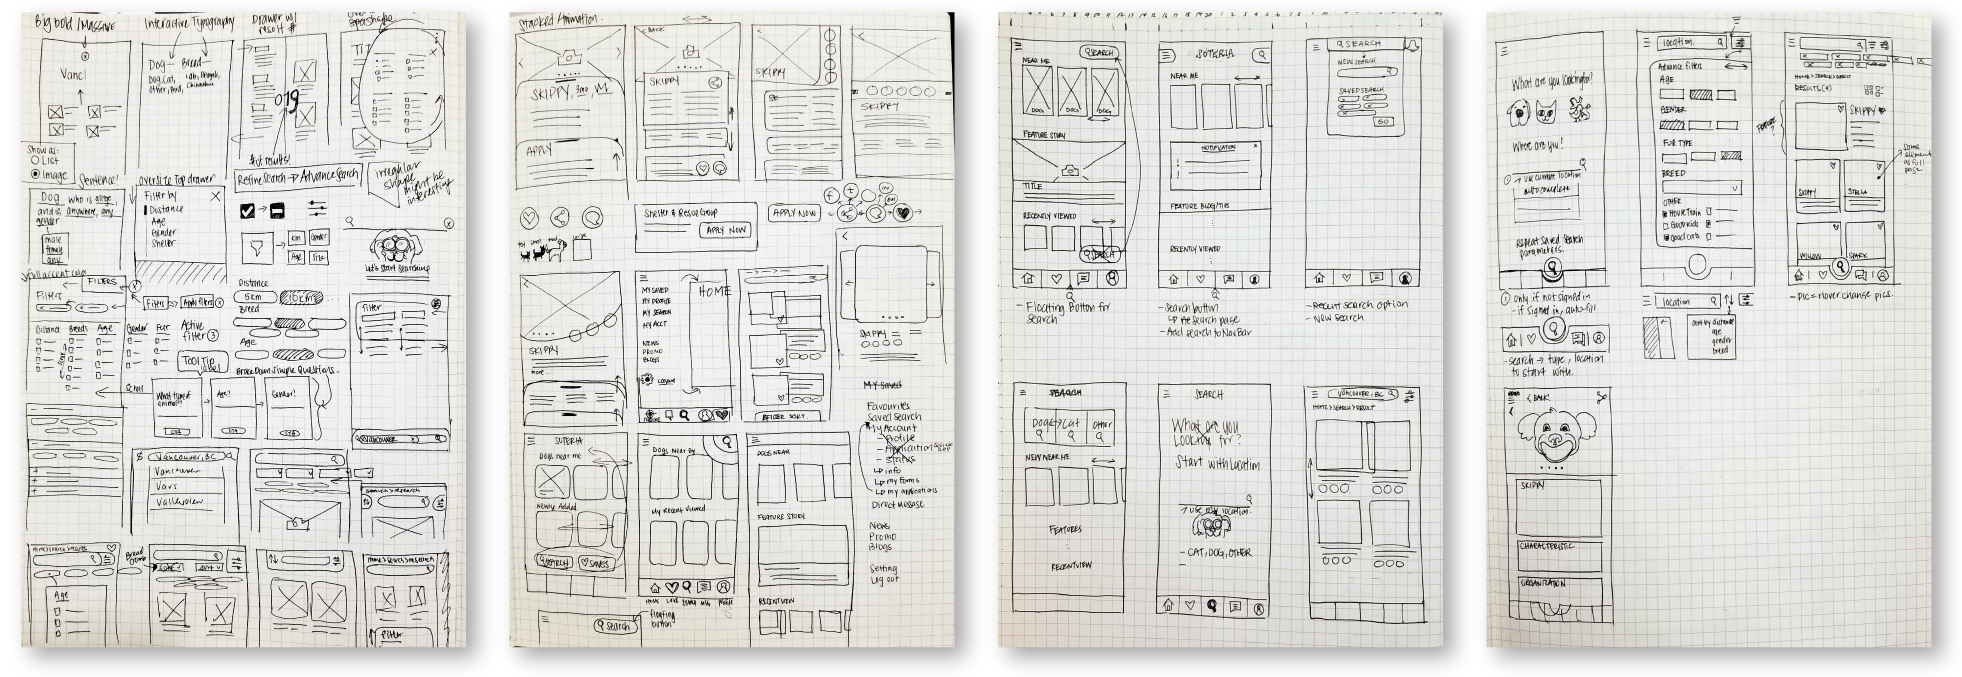 Big bold / Massive
Interactive Typography
Drawer w/
result #
Vancl
Dog
Breed
Dog, Cat,
Other, Bird,
Lab, Beagle,
Chihuahua
019
# of results!
Show as:
List
Image
Sentence!
oversize Top drawer
Refine Search → Advance Search
irregular
shape
might be
interesting
Dog who is
and is anywhere, any
gender
male
female
any
Filter by
Distance
Age
Gender
Shelter
km
Gender
Age
Size
Let's start searching
Full accent color
FILTERS
Filters
Filters
Apply filters
Distance
5km
10km
Breed
Age
Filter
Distance
Breeds
Age
Gender
Furr
Active
filter 3
Tool Tip
label
Break Down Simple Questions.
Scroll
What type of
animal?
Age?
Gender?
Vancouver
Vancouver, BC
Vancouver
Vars
Valleyview
Search > research
Home > search > results
Bread
Crumb
sort
sort
Home > Search > research
Age
Filter
Stacked Animation.
< BACK
SKIPPY, 3mo, M
SKIPPY
SKIPPY
SKIPPY
APPLY
Shelter & Rescue Group
APPLY NOW
APPLY NOW
SKIPPY
more...
MY SAVED
MY PROFILE
MY SEARCH
MY ACCT
NEWS
PROMO
BLOGS
LOGOUT
HOME
REFINE SORT.
SKIPPY
MY Saved
Favourites
Saved Search
My Account
- Profile
- Application
- Status
↳ info
↳ my forms
↳ my applications
Direct Message
News
Promo
Blogs
Setting
Log out
SOTERIA
Dogs near me
Newly Added
SEARCH
SAVES
Dogs Near By
My Recent Viewed
HOME LOVE SEARCH MSG PROFILE
DOGS NEAR
FEATURE STORY
RECENT VIEW
Search
floating
button
SEARCH
NEAR ME
DOG
DOG
DOG
FEATURE STORY
TITLE
RECENTLY VIEWED
SEARCH
- Floating Button for
search
SOTERIA
NEAR ME
NOTIFICATION
FEATURE BLOG/TIPS
RECENTLY VIEWED
- Search button
↳ to Search page
- Add search to NavBar
SEARCH
NEW SEARCH
SAVED SEARCH
GO
- Recent search option
- New search
SEARCH
Dog
Cat
Other
NEW NEAR ME
FEATURES
RECENT VIEW
SEARCH
What are you
Looking for?
Start with Location
↗ use my location.
- CAT, DOG, OTHER
Vancouver, BC
HOME > SEARCH > RESULT
What are you looking for?
Where are you?
↗ use current location
autocomplete
Repeat Saved Search
parameters.
① only if not signed in
- if signed in, auto-fill
- search → type, location
to start with.
location
Advance filters
AGE
GENDER
FUR TYPE
BREED
OTHER
House Train
Good kids
good cats
location
Sort by distance
age
gender
breed
HOME > SEARCH > RESULT
RESULTS (4)
FEATURE?
SKIPPY
SKIPPY
STELLA
WILLOW
SPARK
some
elements
as full
page
- PIC = Hover change pics.
< BACK
SKIPPY
CHARACTERISTIC
ORGANIZATION